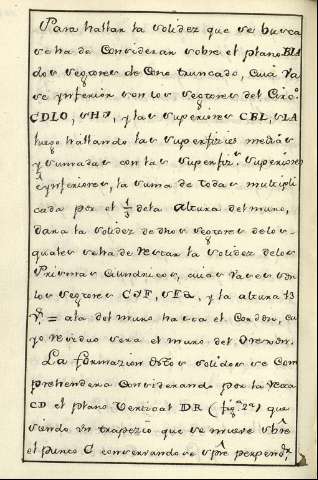 Para hallar la solidez que se busca
se ha de Considerar sobre el plano BLA
dos segtores de Cono truncado, cuia va
se ynferior son los segtores del Circo.
CDLO, sHJ, y las superiores CBL, sLA
luego hallando las superfizies medias
y sumadas con las superfiz.s superiores
é ynferiores, la suma de todas multipli
cada por el 1/3 de la altura del muro,
dara la solidez de dhos segtores de los
quales se ha de restar la solidez de los
Prismas Cilindricos, cuias vases son
los segtores y la altura 13
p.s = ala del muro hasta el Cordon, cu
yo residuo sera el muro del Orexon.
La formazion destos solidos se Com
prehendera Considerando por la Recta
CD el plano Vertical DR (fig.a 2.a) que
siendo un trapezio que se mueve sbre
el punto C conservandose spre perpend.r